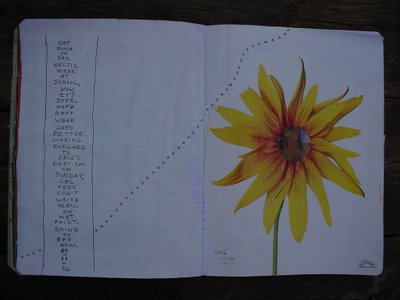 NOT
MUCH
TO
SAY,
HECTIC
WEEK
AT
SCHOOL,
NOW
IT'S
OVER,
HOPE
NEXT
WEEK
GOES
BETTER.
LOOKING
FORWARD
TO
ERIN'S
BAPTISM
ON
SUNDAY,
GEL
PENS
DON'T
WRITE
WELL
ON
WET
PAINT.
GOING
TO
BED
NOW.